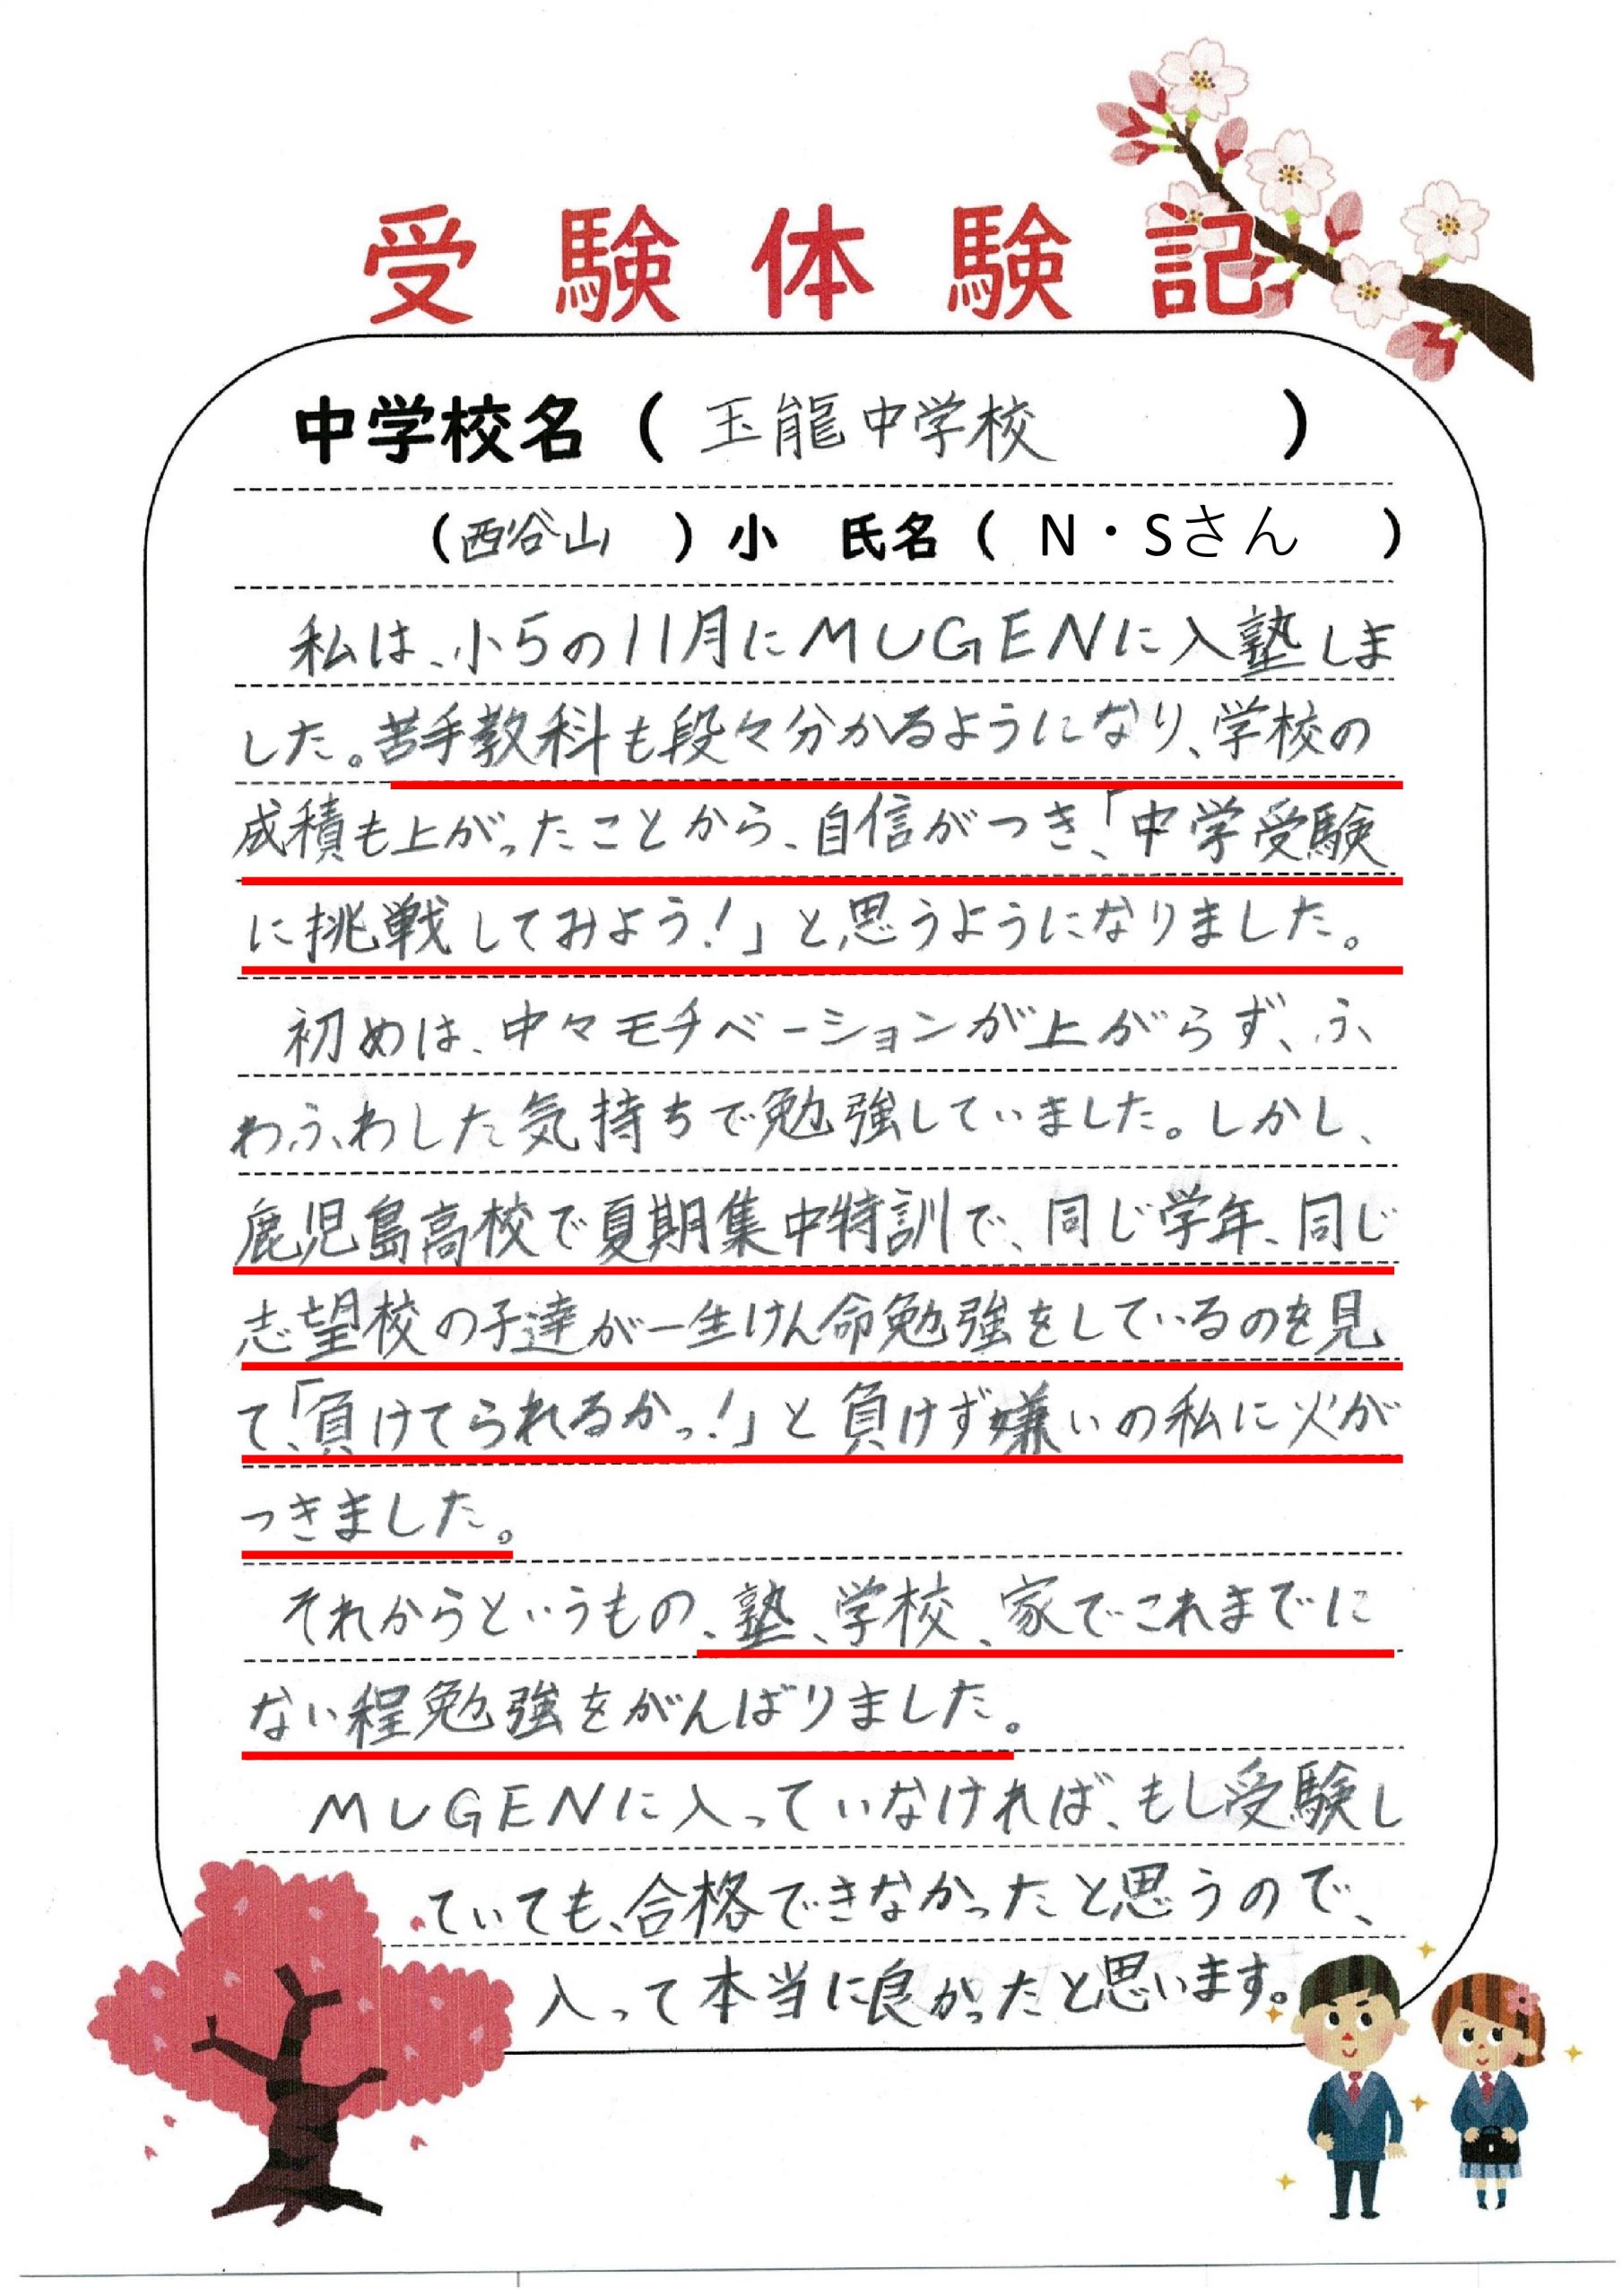 受験体験記
中学校名（玉龍中学校）
（西谷山）小 氏名（N・Sさん）
私は、小5の11月にMUGENに入塾しま
した。苦手教科も段々分かるようになり、学校の
成積も上がったことから、自信がつき、「中学受験
に挑戦してみよう！」と思うようになりました。
初めは、中々モチベーションが上がらず、ふ
わふわした気持ちで勉強していました。しかし、
鹿児島高校で夏期集中特訓で、同じ学年、同じ
志望校の子達が一生けん命勉強をしているのを見
て、「負けてられるかっ！」と負けず嫌いの私に火が
つきました。
それからというもの、塾、学校、家でこれまでに
ない程勉強をがんばりました。
MUGENに入っていなければ、もし受験し
ていても、合格できなかったと思うので、
入って本当に良かったと思います。